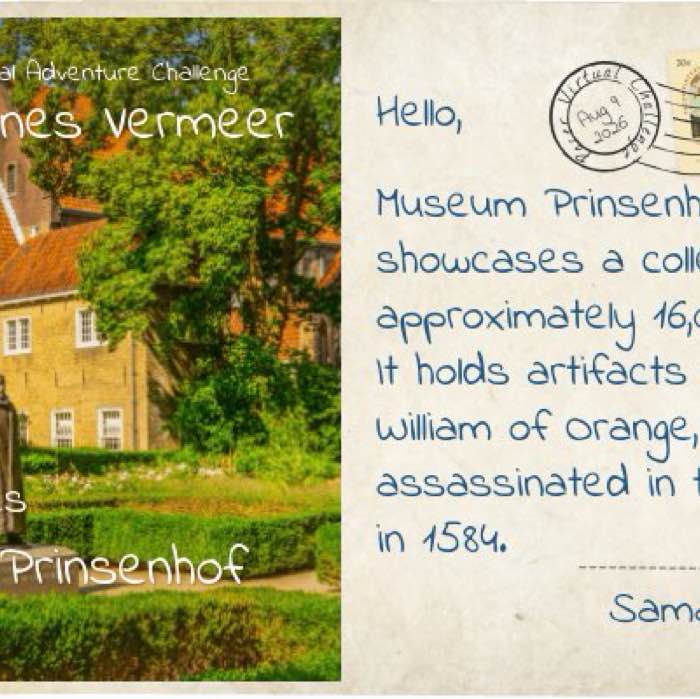 al Adventure Challenge
nes Vermeer
s
Prinsenhof
Hello,
Pacer Virtual Challenge
Aug 9
2026
30c
Museum Prinsenh
showcases a coll
approximately 16,
It holds artifacts
William of Orange,
assassinated in t
in 1584.
Sam